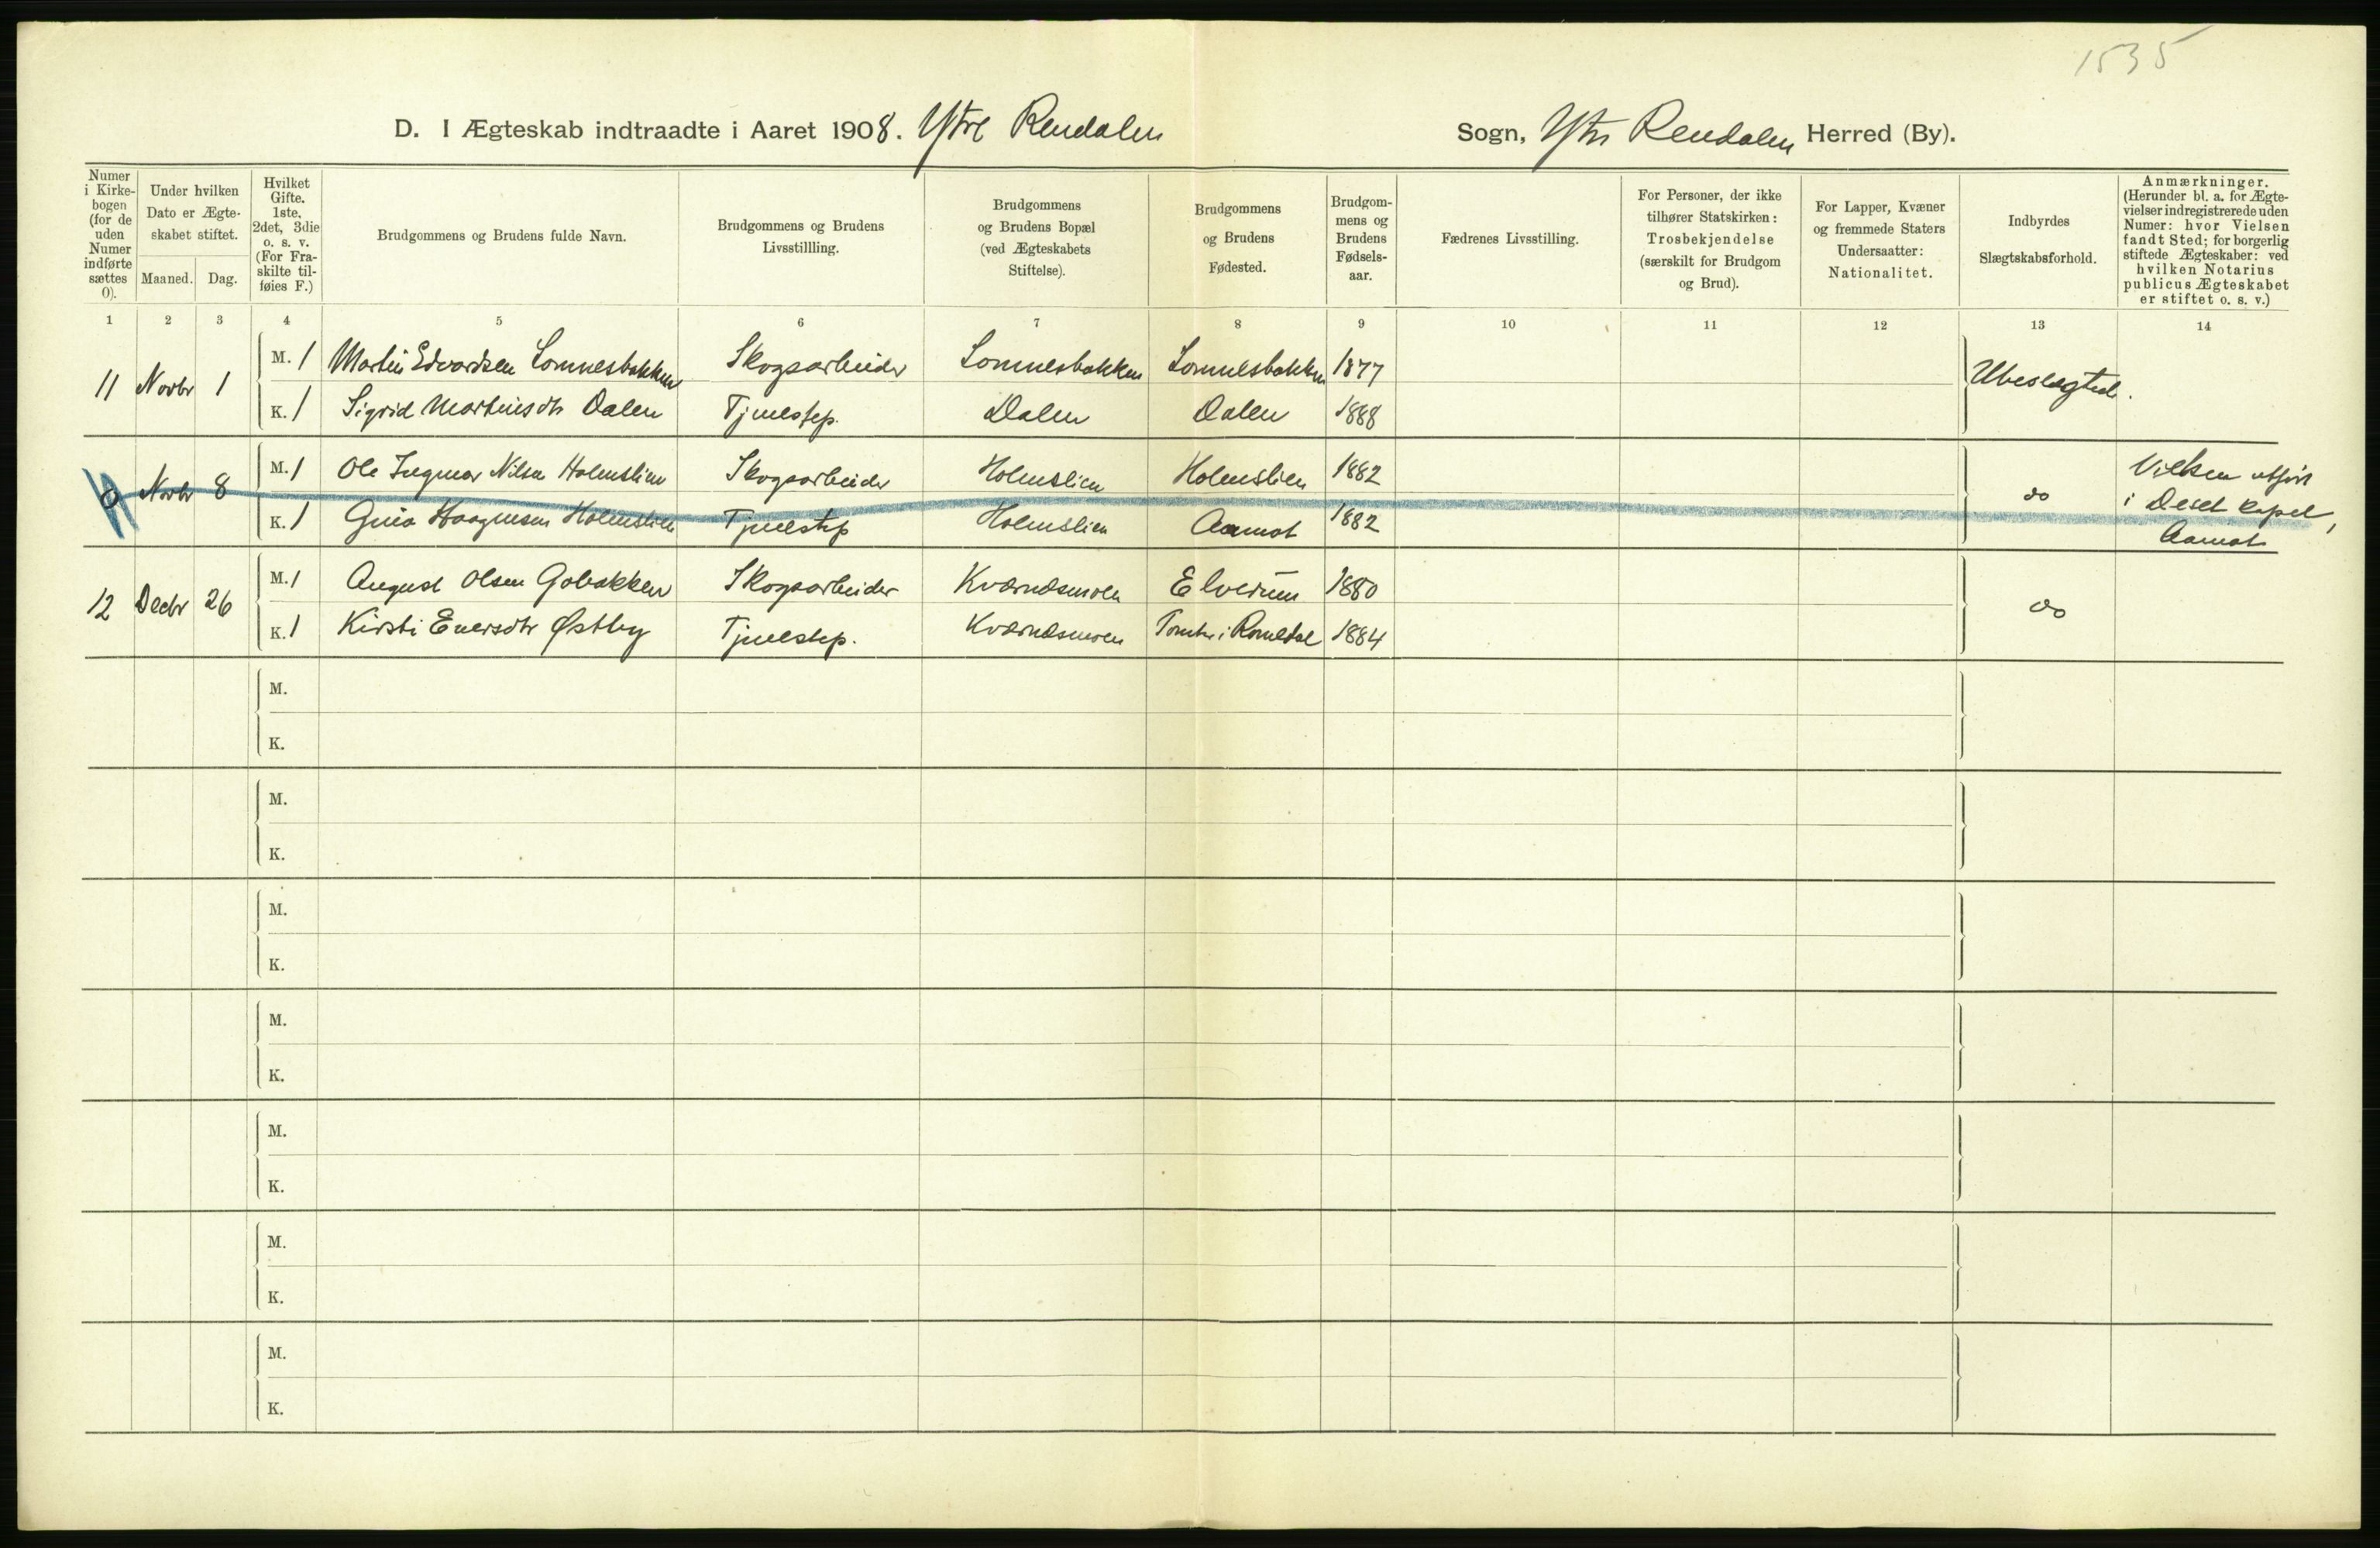 1535
D. I Ægteskab indtraadte i Aaret 1908. Ytre Rendalen Sogn, Ytr Rendalen Herred (By).
Numer i Kirkebogen (for de uden Numer indførte sættes 0).
Under hvilken Dato er Ægteskabet stiftet.
Maaned. Dag.
Hvilket Gifte. 1ste, 2det, 3die o. s. v. (For Fraskilte tilføies F.)
Brudgommens og Brudens fulde Navn.
Brudgommens og Brudens Livsstillling.
Brudgommens og Brudens Bopæl (ved Ægteskabets Stiftelse).
Brudgommens og Brudens Fødested.
Brudgommens og Brudens Fødselsaar.
Fædrenes Livsstilling.
For Personer, der ikke tilhører Statskirken: Trosbekjendelse (særskilt for Brudgom og Brud).
For Lapper, Kvæner og fremmede Staters Undersaatter: Nationalitet.
Indbyrdes Slægtskabsforhold.
Anmærkninger. (Herunder bl. a. for Ægtevielser indregistrerede uden Numer: hvor Vielsen fandt Sted; for borgerlig stiftede Ægteskaber: ved hvilken Notarius publicus Ægteskabet er stiftet o. s. v.)
1 2 3 4 5 6 7 8 9 10 11 12 13 14
11 Novbr 1 M. 1 Martin Edvardsen Lomnesbakken Skogsarbeider Lomnesbakken Lomnesbakken 1877 Ubeslægtede.
K. 1 Sigrid Martinsdtr Dalen Tjenestep. Dalen Dalen 1888
0 Novbr 8 M. 1 Ole Ingmar Nilsen Holmslien Skogsarbeider Holmslien Holmslien 1882 do Vielsen utført
K. 1 Gina Haagensen Holmslien Tjenestep Holmslien Aamot 1882 i Deset kapel,
Aamot
12 Decbr 26 M. 1 August Olsen Gobakken Skogsarbeider Kværnæsmoen Elverum 1880 do
K. 1 Kirsti Enersdtr Østby Tjenestep. Kværnæsmoen Tomter i Romedal 1884
M.
K.
M.
K.
M.
K.
M.
K.
M.
K.
M.
K.
M.
K.